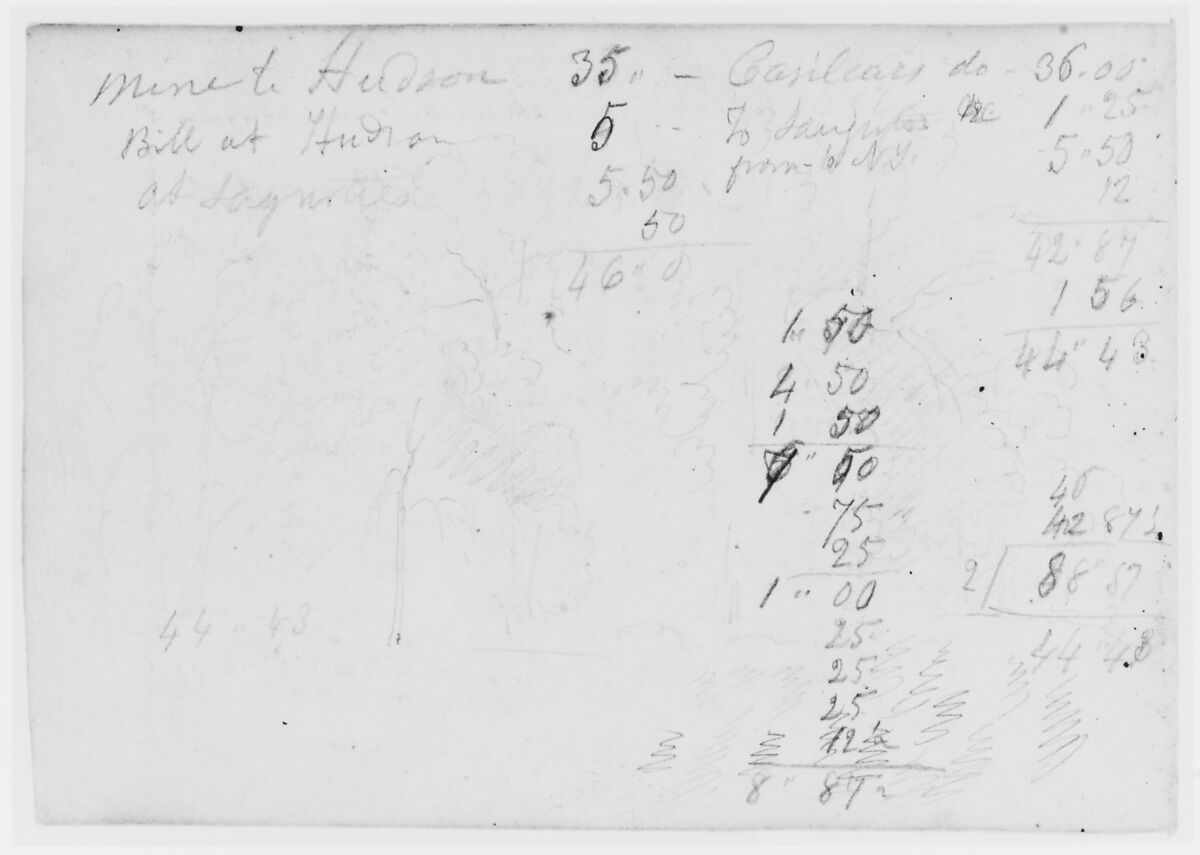 Mine to Hudson 35 " —
Bill at Hudson 5
at Sagnities 5 " 50
50
46 " 0
Casilears do - 36 " 00
To 1 " 25
from to N.Y. 5 " 50
12
42 " 87
1 56
44 " 43
1 " 50
4 " 50
1 50
" 50
75
25
1 " 00
25
25
25
12½
8 " 87½
42 87½
2/ 88 " 87
44 " 43
44 " 43